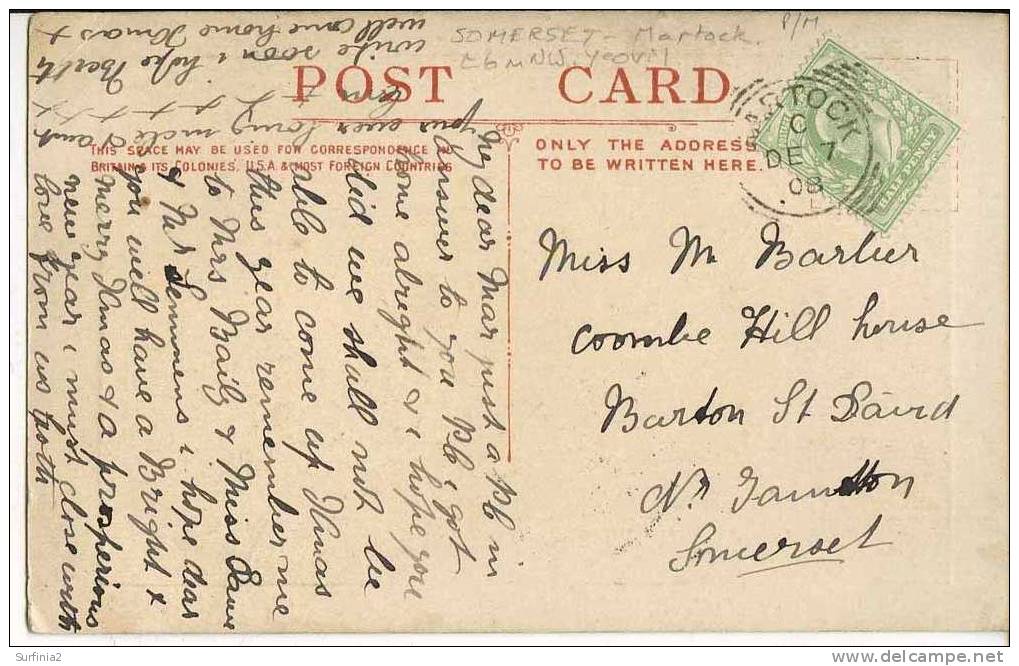 SOMERSET - Martock.
P/M
E6 m NW. Yeovil
POST CARD
THIS SPACE MAY BE USED FOR CORRESPONDENCE IN
BRITAIN & ITS COLONIES, U.S.A & MOST FOREIGN COUNTRIES
ONLY THE ADDRESS
TO BE WRITTEN HERE.
MARTOCK
DE 7
08
HALF PENNY
Miss M Barber
Coombe Hill house
Barton St David
Nr
Somerset
My dear Mar just a Pb in
answer to you Pb i got
ome alright & i hope you
did we shall not be
able to come up Xmas
this year remember me
to Mrs Baily & Miss
& Mr Lemmens i hope dear
you will have a Bright &
merry Xmas & a prosperious
new year i must close with
love from us both
your ever loving uncle & aunt
write soon i hope Berth
well come home Xmas x
Surfinia2
www.delcampe.net